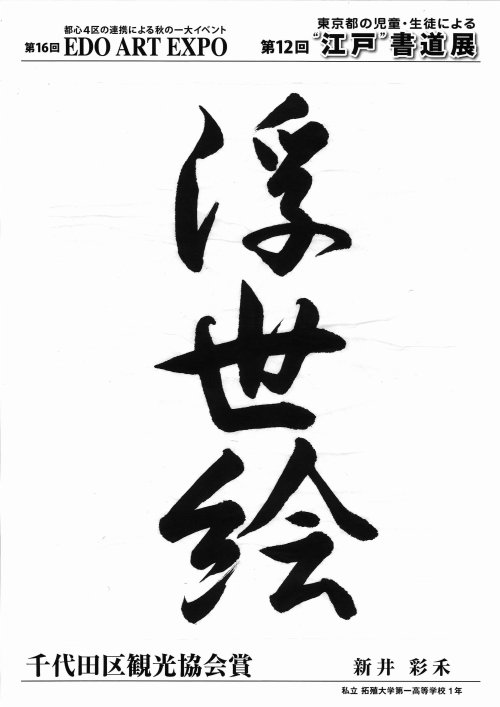 都心4区の連携による秋の一大イベント
第16回 EDO ART EXPO
東京都の児童・生徒による
第12回 “江戸”書道展
浮世絵
千代田区観光協会賞
新井 彩禾
私立 拓殖大学第一高等学校 1年